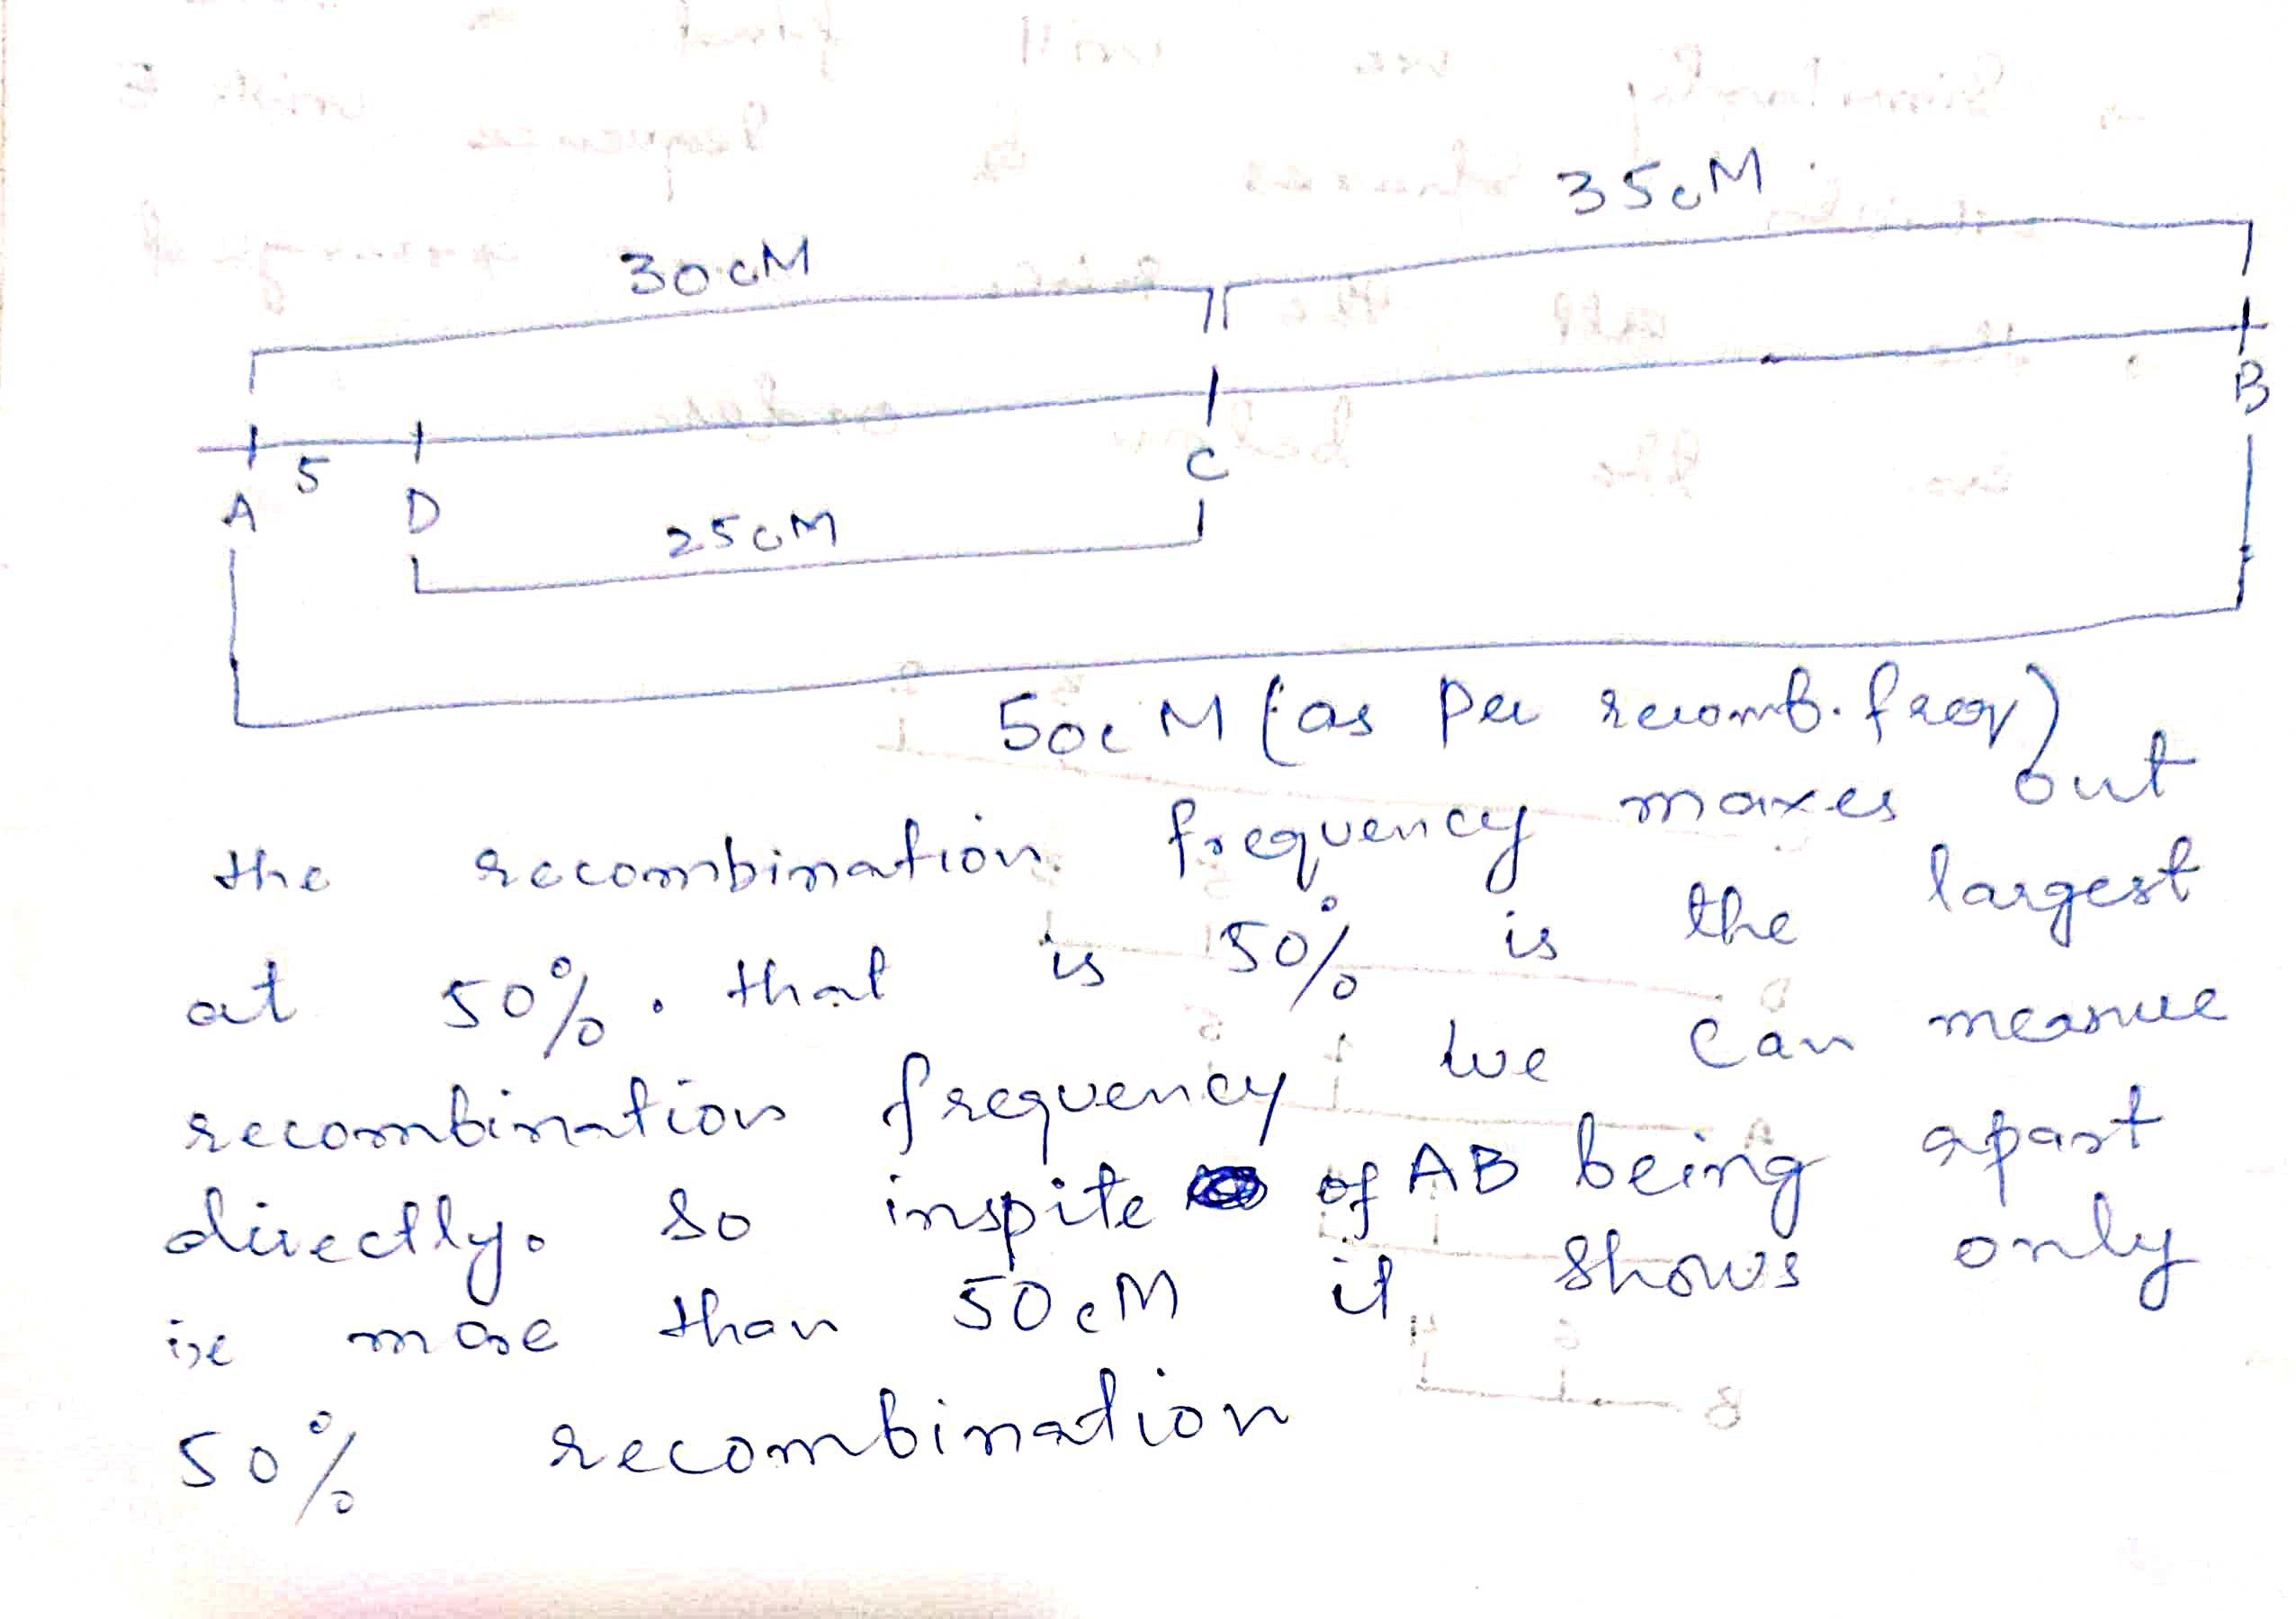 35cM
30cM
5
A D C B
25cM
50cM (as per recomb. freq)
the recombination frequency maxes out
at 50%. that is 50% is the largest
recombination frequency we can measure
directly. So inspite of AB being apart
ie more than 50cM it shows only
50% recombination